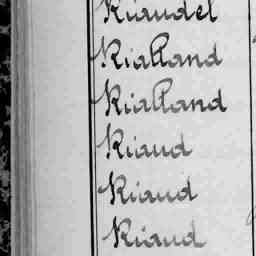 Riaudel
Rialland
Rialland
Riaud
Riaud
Riaud